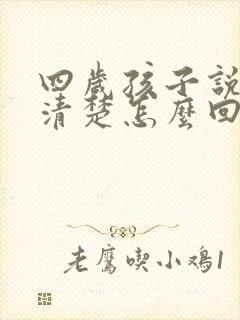 四歲孩子說
清楚怎麼回
老鷹喫小鸡1